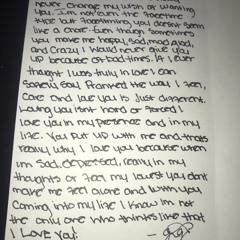 never change my wish of wanting
you. I'm not even the sometime
type but sometimes you doesn't seem
like a chore. Even though sometimes
you make me happy, sad, mad, glad,
and crazy I would never give you
up because of bad times. If I ever
thought I was truly in love I can
safely say the way I feel,
care and love you is just different.
Loving you isn't hard or forced I
love you in my presence and in my
life. You put up with me and that's
really why I love you because when
im sad, depressed, really in my
thoughts or feel my lowest you don't
make me feel alone and with you
coming into my life I know im not
the only one who thinks like that
I Love You!